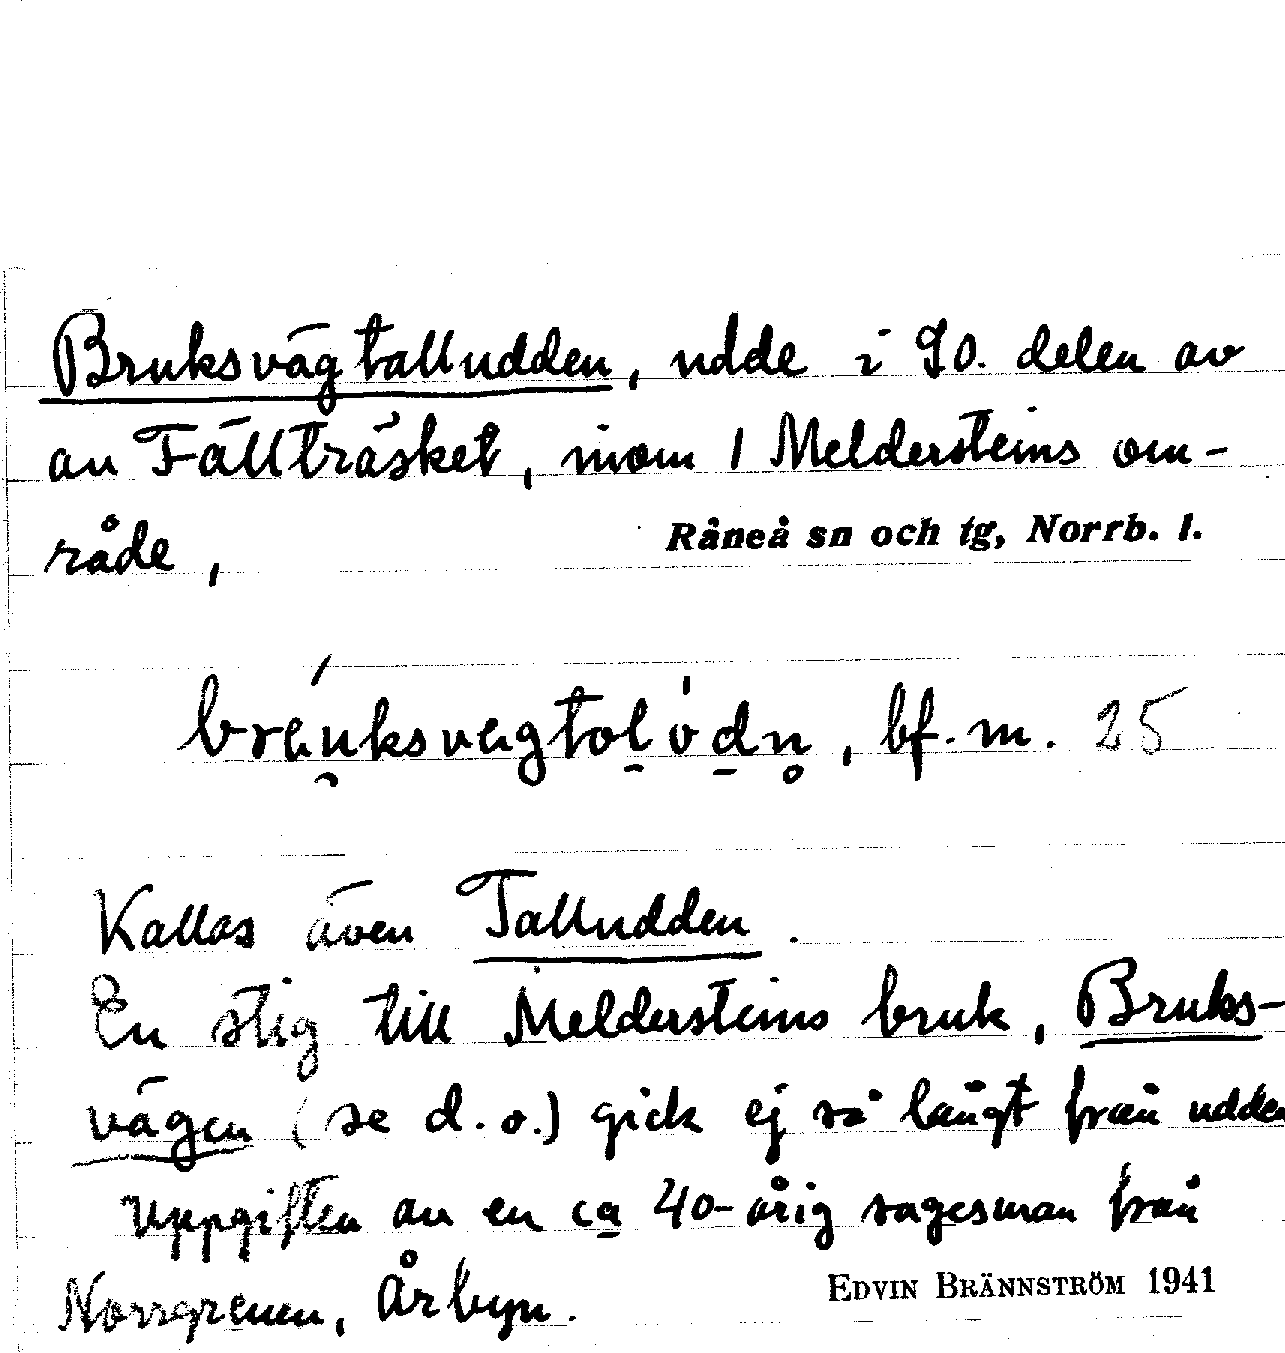 Bruksvägtalludden, udde i SO. delen av
av Fällträsket, inom 1 Meldersteins om-
råde,
Råneå sn och tg, Norrb. l.
bf. m. 25
Kallas även Talludden.
En stig till Meldersteins bruk, Bruks-
vägen (se d. o.) gick ej så långt från udden
Uppgiften av en ca 40-årig sagesman från
Norrgrenen, Årbyn.
EDVIN BRÄNNSTRÖM 1941